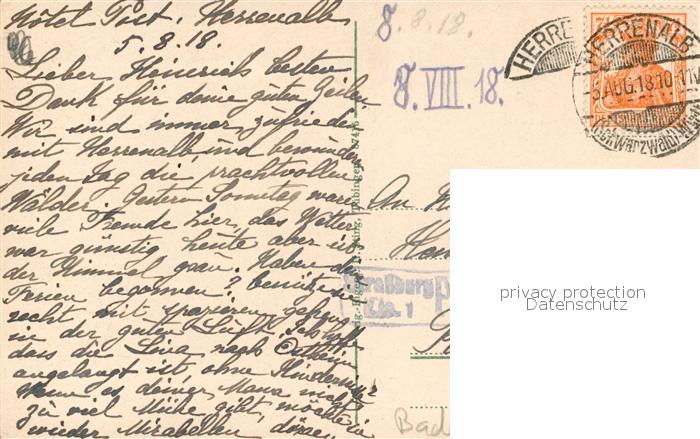 Hôtel Post, Herrenalb
5.8.18.
Lieber Heinrich, besten
Dank für deine guten Zeilen
Wir sind immer zufrieden
mit Herrenalb und bewundern
jeden Tag die prachtvollen
Wälder. Gestern Sonntag waren
viele Fremde hier, das Wetter
war günstig heute aber ist
der Himmel grau. Haben die
Ferien begonnen? benütze sie
recht mit spazieren gehen
in der guten Luft. Ich hoffe
dass die Lina nach Ostheim
angelangt ist, ohne
Wenn es deiner Mama nicht
zu viel Mühe gibt, möchte ich
wieder Mirabellen
8.8.18.
8.VIII.18.
HERRENALB
AUG.18.10-11
(Schwarzwald)
An
Straßburg
Bad
privacy protection
Datenschutz